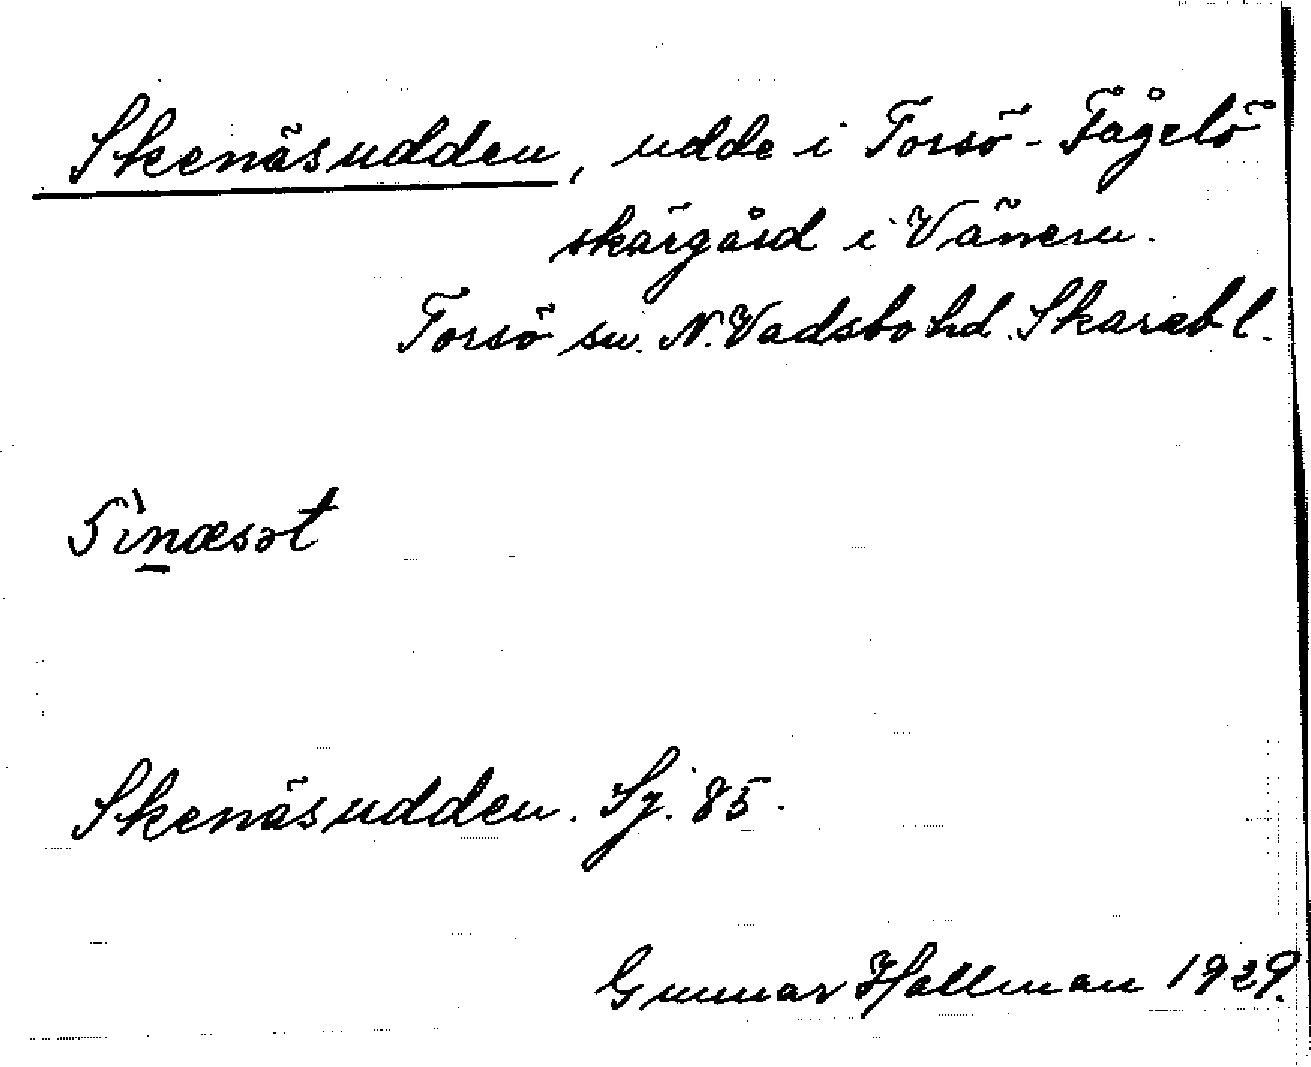 Skenäsudden, udde i Torsö-Fågelö
skärgård i Vänern.
Torsö sn. N. Vadsbo hd. Skarab l.
Skenäsudden. Sj. 85.
Gunnar Hallman 1929.